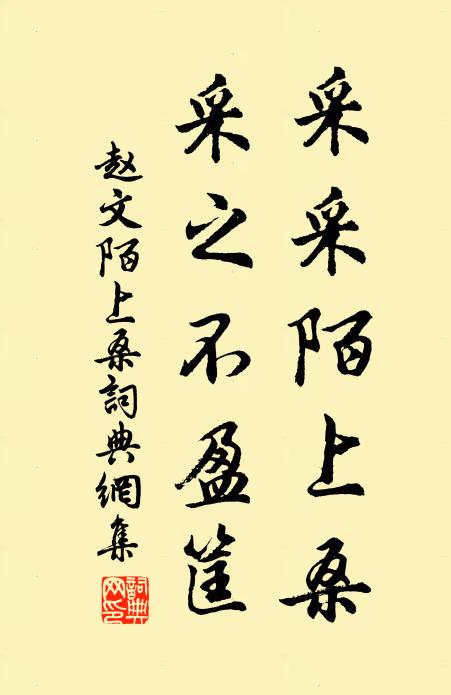 采采陌上桑
采之不盈筐
赵文陌上桑詞典網集
詞典網印